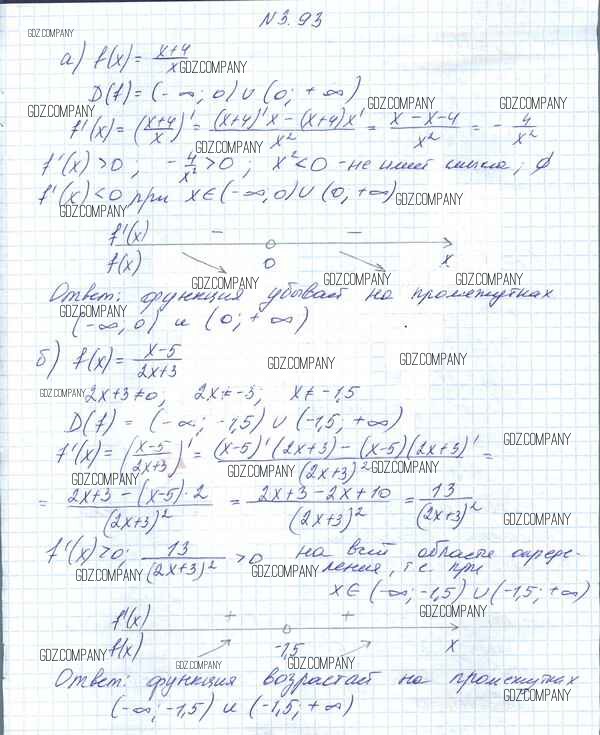 N 3.93
GDZ.COMPANY
а) f(x) = (x+4)/x
GDZ.COMPANY
D(f) = (-∞; 0) ∪ (0; +∞)
GDZ.COMPANY GDZ.COMPANY GDZ.COMPANY
f'(x) = ((x+4)/x)' = ((x+4)'x - (x+4)x')/x² = (x-x-4)/x² = -4/x²
GDZ.COMPANY
f'(x) > 0; -4/x² > 0; x² < 0 - не имеет смысла; ∅
f'(x) < 0 при x ∈ (-∞, 0) ∪ (0, +∞)
GDZ.COMPANY GDZ.COMPANY
f'(x) - -
f(x) 0 x
GDZ.COMPANY GDZ.COMPANY GDZ.COMPANY
Ответ: функция убывает на промежутках
GDZ.COMPANY
(-∞, 0) и (0; +∞)
б) f(x) = (x-5)/(2x+3)
GDZ.COMPANY GDZ.COMPANY
GDZ.COMPANY
2x+3≠0; 2x≠-3; x≠-1,5
D(f) = (-∞; -1,5) ∪ (-1,5; +∞)
GDZ.COMPANY
f'(x) = ((x-5)/(2x+3))' = ((x-5)'(2x+3) - (x-5)(2x+3)')/(2x+3)² =
GDZ.COMPANY GDZ.COMPANY GDZ.COMPANY
= (2x+3 - (x-5)·2)/(2x+3)² = (2x+3-2x+10)/(2x+3)² = 13/(2x+3)²
GDZ.COMPANY
f'(x) > 0; 13/(2x+3)² > 0 на всей области опреде-
ления, т.е. при
GDZ.COMPANY GDZ.COMPANY
x ∈ (-∞; -1,5) ∪ (-1,5; +∞)
GDZ.COMPANY
f'(x) + +
f(x) -1,5 x
GDZ.COMPANY GDZ.COMPANY GDZ.COMPANY
Ответ: функция возрастает на промежутках
GDZ.COMPANY
(-∞; -1,5) и (-1,5; +∞)